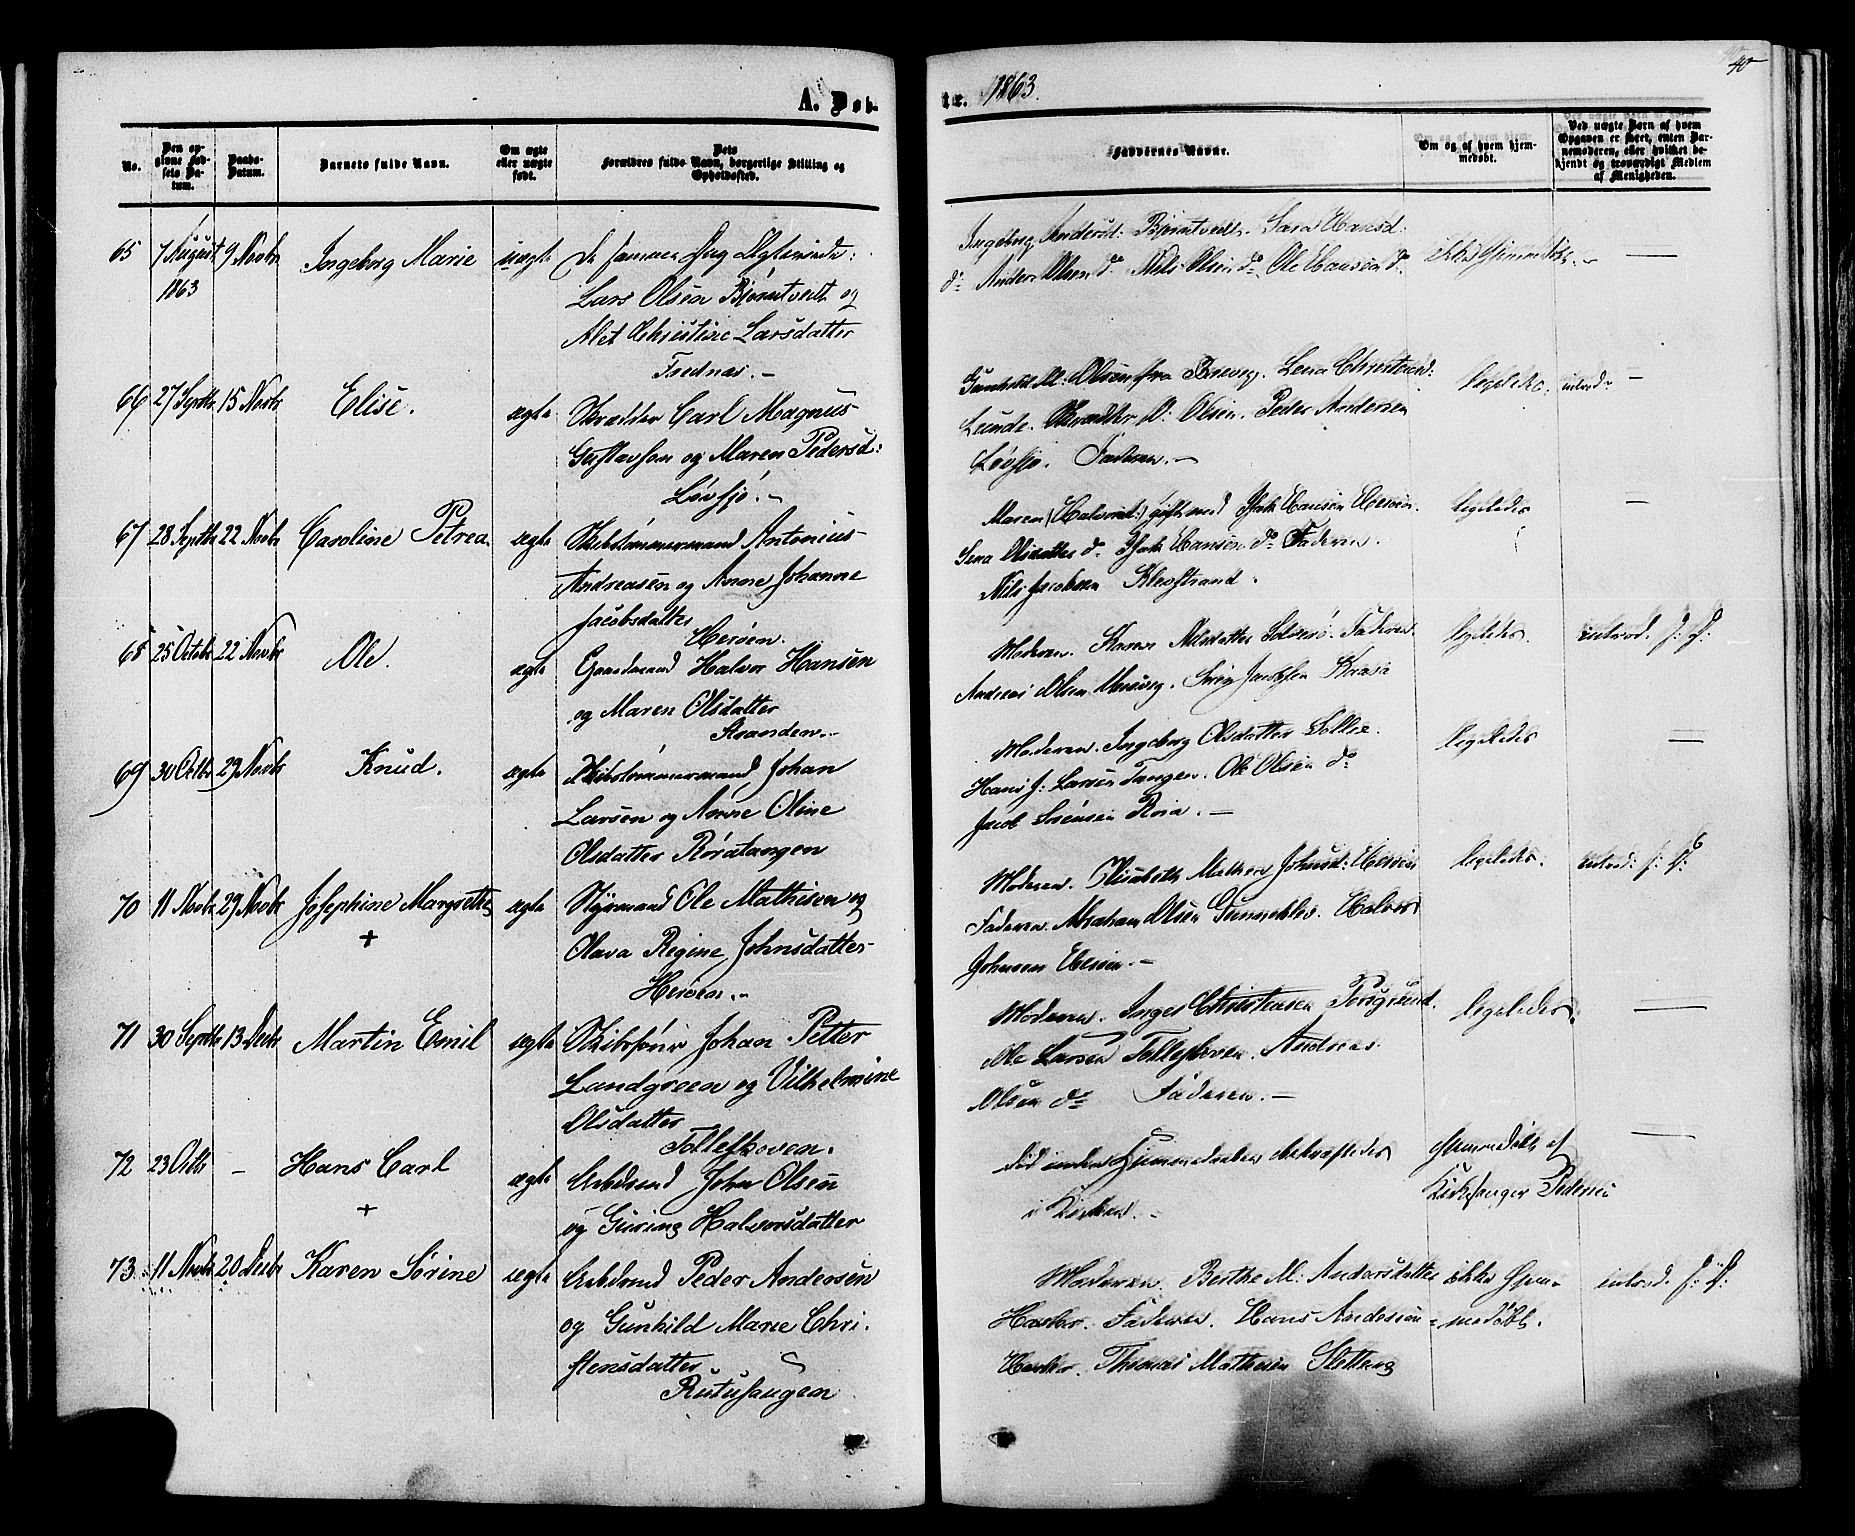 A. Døb-
te. 1863.
40
No.
Den opgivne Fødsels Datum.
Daabs-Datum.
Barnets fulde Navn.
Om ægte eller uægte født.
Forældres fulde Navn, borgerlige Stilling og Opholdssted.
Faddernes Navne.
Om og af hvem hjemmedøbt.
Ved uægte Børn af hvem Opgaven er skeet, enten Barnemoderen, eller hvilket bekjendt og troværdigt Medlem af Menigheden.
65 7 August 1863 9 Novbr Ingeborg Marie uægte
Lars Olsen Bjørntvedt og
Alet Christine Larsdatter
Frednæs. –
Ingeborg Andersd: Bjørntvedt. Sara Hansd:
do Anders Olsen do Nils Olsen do. Ole Hansen do.
ikke hjemmedøbt. –
66 27 Septbr 15 Novbr Elise. ægte Skrædder Carl Magnus
Gustavson og Maren Pedersd:
Løvsjø. –
Gunhild M: Olsen fra Brevig. Lena
Lunde. Olsen. Peder Andersen
Løvsjø. Faderen. –
ligeledes. introd. –
67 28 Septbr 22 Novbr Caroline Petrea. ægte Skibstømmermand Antonius
Andreasen og Anne Johanne
Jacobsdatter
Herøen.
Maren (Halvorsd:) gift med Isak Hansen Herøen.
Olsdatter do. Isak Hansen do Faderen.
Nils Jacobsen Klevstrand.
ligeledes –
68 25 Octobr 22 Novbr Ole. ægte Gaardmand Halvor Hansen
og Maren Olsdatter
Stranden. –
Moderen. Karen Nilsdatter Faderen.
Andreas Olsen
ligeledes. introd. f: D:
69 30 Octbr 29 Novbr Knud. ægte Skibstømmermand Johan
Larsen og Anne Oline
Olsdatter Røratangen
Moderen. Ingeborg Olsdatter Sollie.
Hans J: Larsen Tangen. Ole Olsen do
Jacob Sørensen Røra. –
ligeledes –
70 11 Novbr 29 Novbr Josephine Margrethe ægte Styrmand Ole Mathisen og
+
Olava Regine Johnsdatter
Herøen. –
Moderen. Elisabeth Johnsd: Herøen
Faderen. Abraham Olsen Gunneklev. Halvor
Johnsen Herøen. –
ligeledes. introd: f: D:
71 30 Septbr 13 Decbr Martin Emil ægte Skibsfører Johan Petter
Landgreen og Vilhelmine
Olsdatter
Tollefhoven.
Moderen. Inger Christensen Porsgrund.
Ole Larsen Tollefhoven. Andreas
Olsen do Faderen. –
ligeledes. –
72 23 Octbr – Hans Carl ægte Arbdsmd John Olsen
+
og Guring Halvorsdatter
Død inden Hjemmedaaben bekræftedes
i Kirken. –
Hjemmedøbt af
Kirkesanger Pedersen
–
73. 11 Novbr 20 Decbr Karen Sørine ægte Arbdsmd Peder Andersen
og Gunhild Marie Chri-
stensdatter
Moderen. Berthe M: Andersdatter
Faderen. Hans Andersen
Thomas Mathisen
ikke hjem-
medøbt.
introd. f: D: